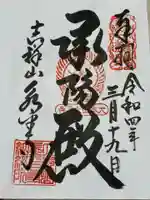 奉拝
令和四年
三月十九日
承陽殿
吉祥山永平寺